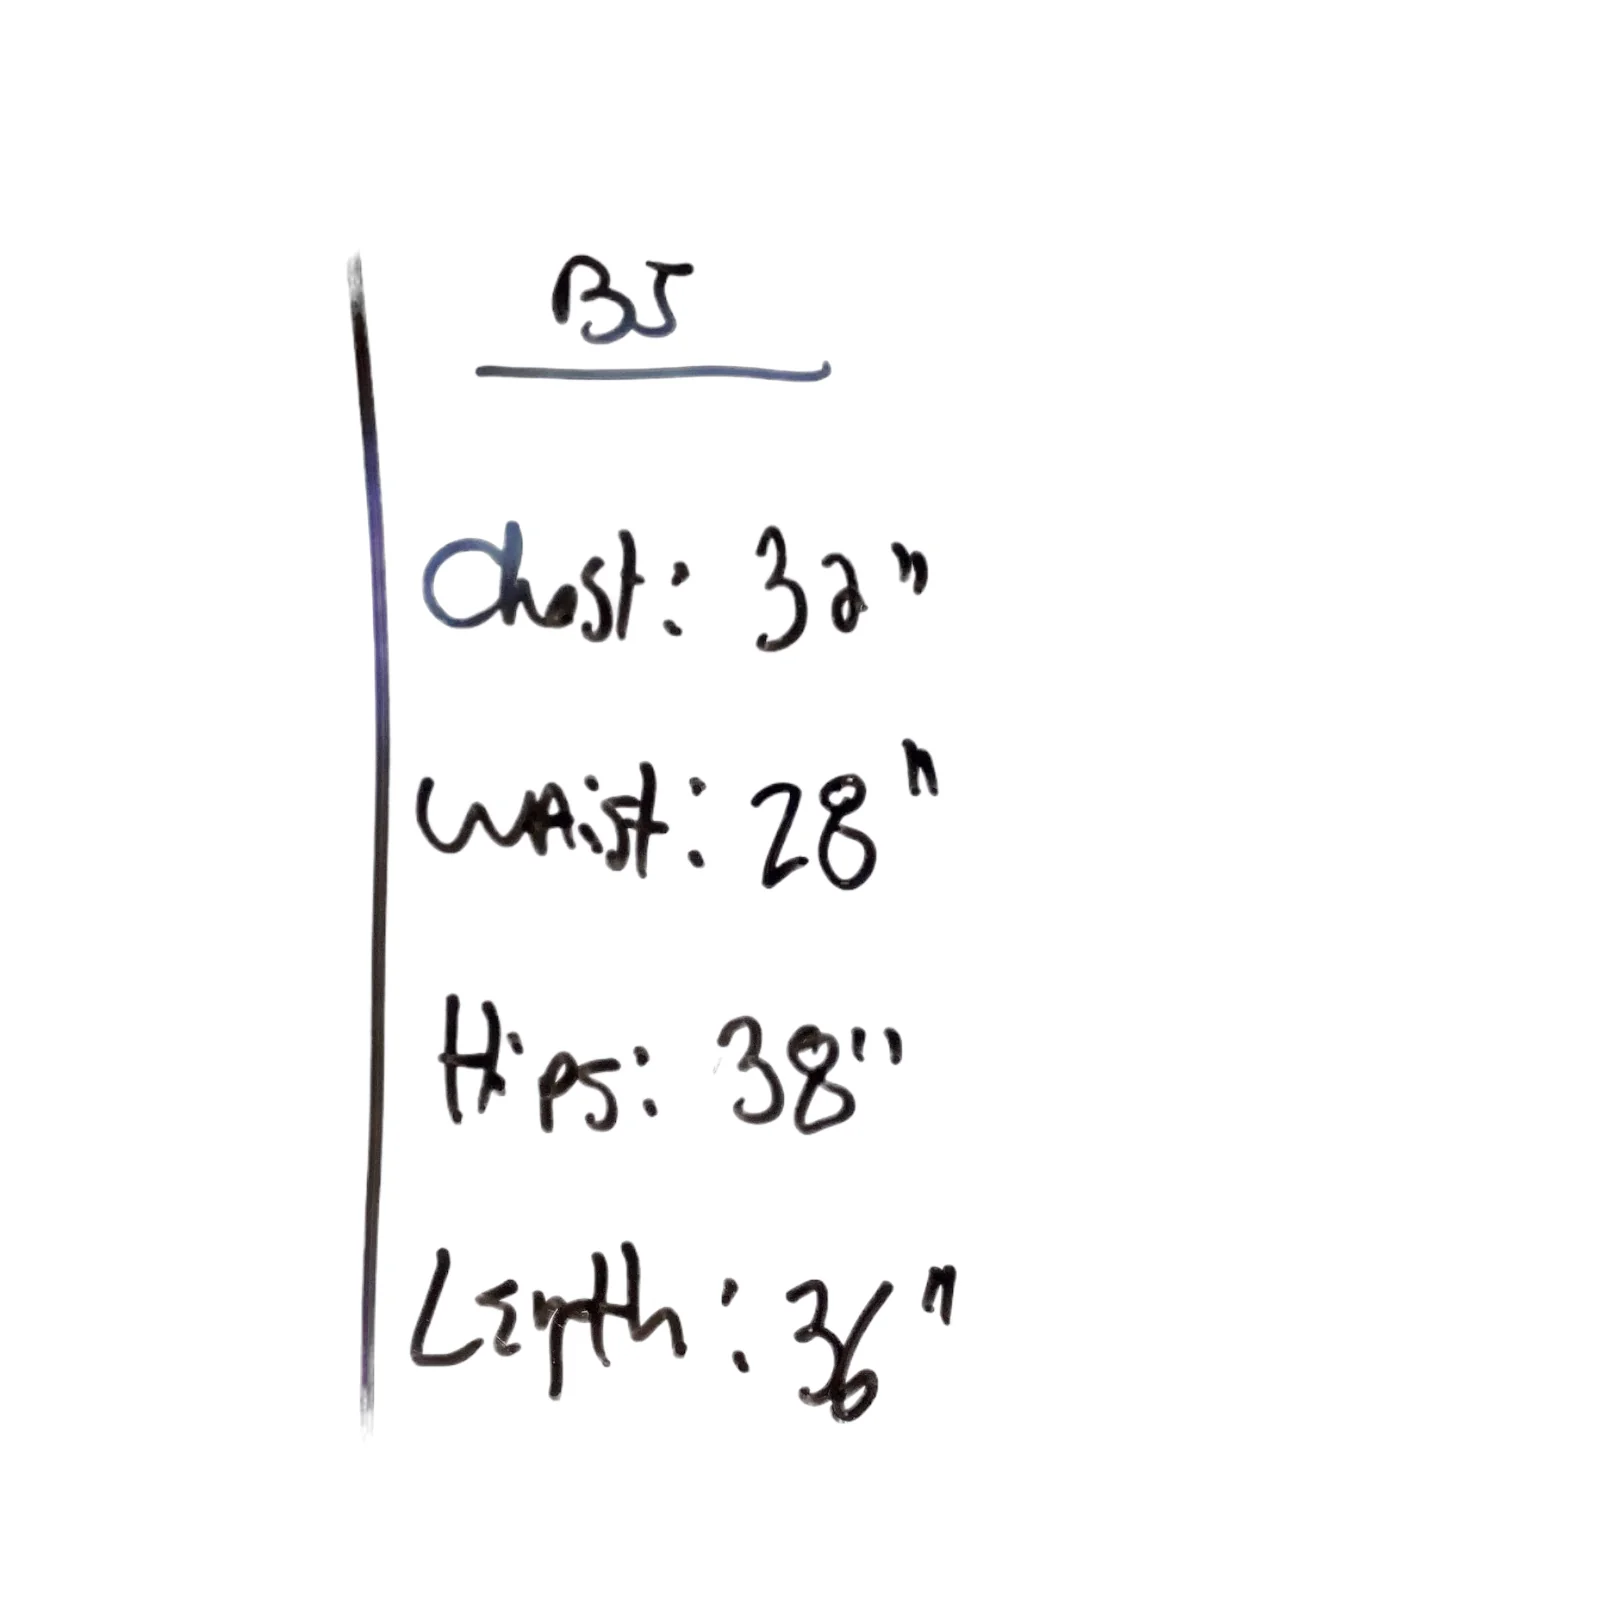 BJ
Chest: 32"
Waist: 28"
Hips: 38"
Length: 36"